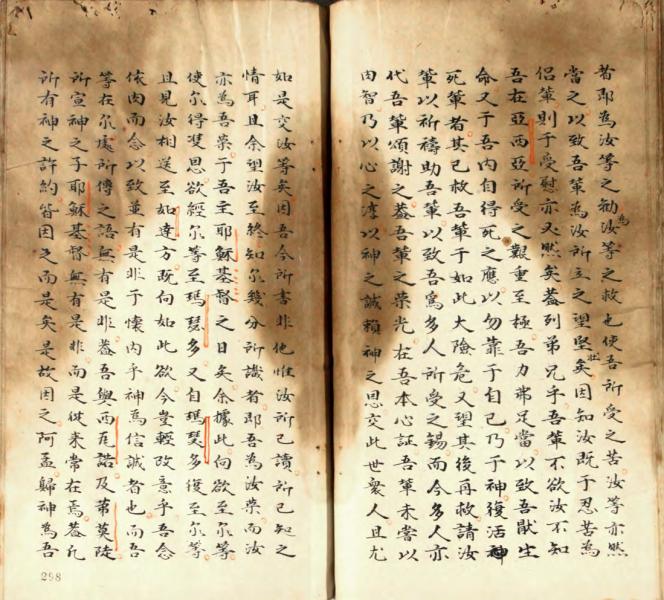 者即為汝等之勸為汝等之救也使吾所受之苦汝等亦然
當之以致吾輩為汝所立之望堅矣因知汝既于忍苦為
侶輩則于受慰亦又然矣蓋列弟兄乎吾輩不欲汝不知
吾在亞西亞所受之艱重至極吾力弗足當以致吾厭生
命又于吾內自得死之應以勿靠于自己乃于神復活神
死輩者其已救吾輩于如此大險危又望其後再救請汝
輩以祈禱助吾輩以致吾為多人所受之錫而今多人亦
代吾輩頌謝之蓋吾輩之榮光在吾本心証吾輩未嘗以
肉智乃以心之淳以神之誠賴神之恩交此世眾人且尤
如是交汝等矣因吾今所書非他惟汝所已讀所已知之
情耳且余望汝至終知尔幾分所識者即吾為汝榮而汝
亦為吾榮于吾主耶穌基督之日矣余據此向欲至尔等
使尔得雙恩欲經尔等至瑪瑟多又自瑪瑟多復至尔等
且見汝相送至如達方既向如此欲今豈輕改意乎吾念
依肉而念以致並有是非于懷內乎神為信誠者也而吾
等在尔處所傳之語無有是非蓋吾與西尼諾及第莫陡
所宣神之子耶穌基督無有是非而是從來常在焉蓋凡
所有神之許約皆因之而是矣是故因之阿孟歸神為吾
298